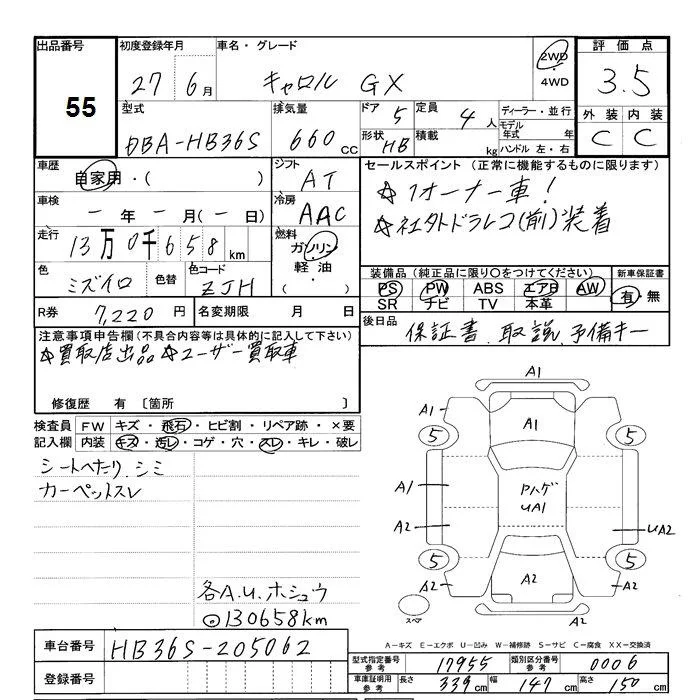 出品番号 初度登録年月 車名・グレード 評価点
55 27 6月 キャロル GX 2WD 4WD 3.5
型式 排気量 ドア 5 定員 4人 ディーラー・並行 外装 内装
DBA-HB36S 660cc 形状 HB 積載 kg モデル年式 年 C C
ハンドル 左・右
車歴 自家用・( ) シフト AT セールスポイント (正常に機能するものに限ります)
車検 ー年ー月(ー日) 冷房 AAC ☆1オーナー車!
☆社外ドラレコ(前)装着
走行 13万0千658km 燃料 ガソリン 軽油・
色 ミズイロ 色替 色コード ZJH 装備品(純正品に限り○をつけてください) 新車保証書
PS PW ABS エアB AW 有・無
SR ナビ TV 本革
R券 7,220円 名変期限 月 日 後日品 保証書 取説 予備キー
注意事項申告欄(不具合内容等は具体的に記入して下さい)
☆買取店出品 ☆ユーザー買取車
修復歴 有 〔箇所 〕
検査員 FW キズ・飛石・ヒビ割・リペア跡・×要
記入欄 内装 キズ・汚レ・コゲ・穴・スレ・キレ・破レ
シートヘタリ、シミ
カーペットスレ
各A.U.ホシュウ
⊙130658km
A1
A1 A1
5 5
A1 ヤハゲ UA1
A2 UA2
5 5
A2 A2 A2
スペア A2
A－キズ E－エクボ U－凹み W－補修跡 S－サビ C－腐食 XX－交換済
車台番号 HB36S-205062
型式指定番号 参考 17955 類別区分番号 参考 0006
登録番号
車庫証明用 参考 長さ 339cm 幅 147cm 高さ 150cm